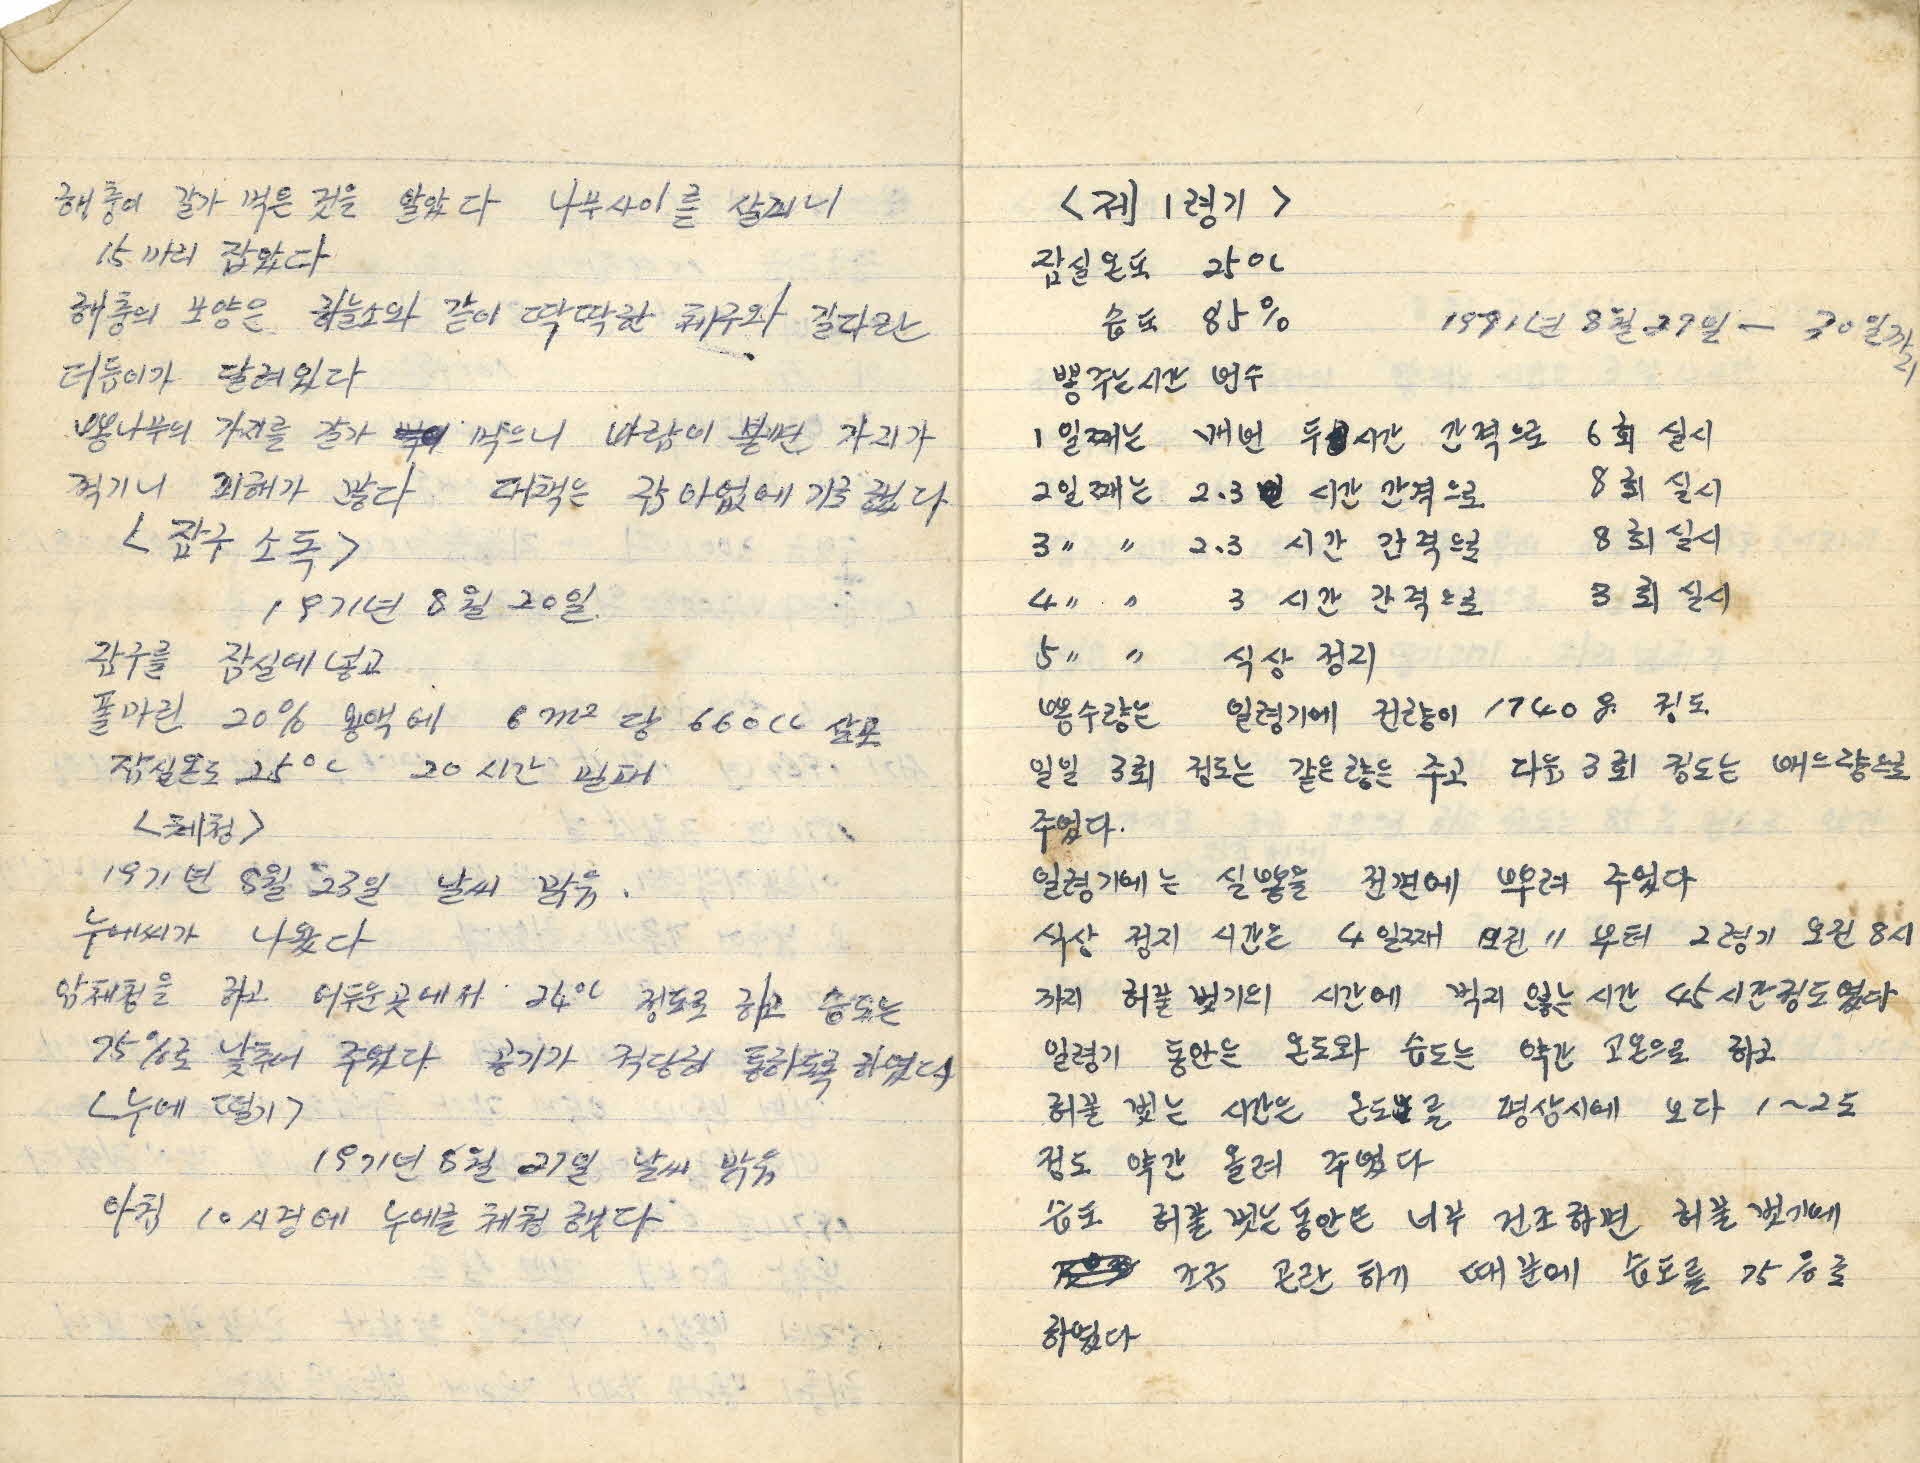 해충이 갈가 먹은 것을 알았다 나무사이를 살피니
15마리 잡았다
해충의 모양은 하늘소와 같이 딱딱한 체구와 길다란
더듬이가 달려있다
뽕나무의 가지를 갈가 먹으니 바람이 불면 가지가
적기니 피해가 많다 대책은 잡아없에기로 했다
<잠구 소독>
1971년 8월 20일.
잠구를 잠실에 넣고
폴마린 20% 용액에 6m² 당 660cc 살포
잠실온도 25°C 20시간 밀폐
<체청>
1971년 8월 23일 날씨 맑음.
누에씨가 나왔다
암체청을 하고 어두운곳에서 24°C 정도로 하고 습도는
75%로 낮추어 주었다 공기가 적당히 통하도록 하였다
<누에 떨기>
1971년 8월 27일 날씨 맑음
아침 10시경에 누에를 체청했다
<제 1령기>
잠실온도 25°C
습도 85%
1971년 8월 27일 - 30일까지
뽕주는시간 번수
1일째는 매번 두시간 간격으로 6회 실시
2일째는 2.3 시간 간격으로 8회 실시
3〃 〃 2.3 시간 간격으로 8회 실시
4〃 〃 3 시간 간격으로 3회 실시
5〃 〃 식상 정지
뽕수량은 일령기에 전량이 1740g 정도
일일 3회 정도는 같은량은 주고 다음 3회 정도는 배으량으로
주었다.
일령기에는 실뽕을 전면에 뿌려 주었다
식상 정지 시간은 4일째 오전 11 부터 2령기 오전 8시
까지 허물벗기의 시간에 먹지 않는 시간 45시간정도였다
일령기 동안은 온도와 습도는 약간 고온으로 하고
허물 벗는 시간은 온도를 평상시에 보다 1~2도
정도 약간 올려 주었다
습도 허물벗는동안은 너무 건조하면 허물벗기에
조금 곤란 하기 때문에 습도를 75%로
하였다